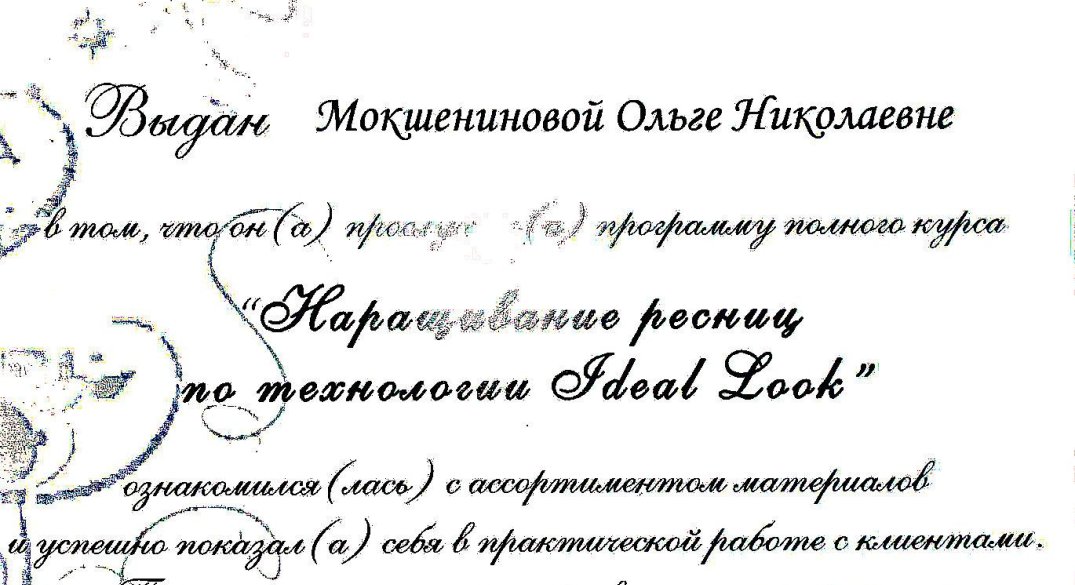 Выдан Мокшениновой Ольге Николаевне
в том, что он(а) прослушал(а) программу полного курса
“Наращивание ресниц
по технологии Ideal Look”
ознакомился(лась) с ассортиментом материалов
и успешно показал(а) себя в практической работе с клиентами.